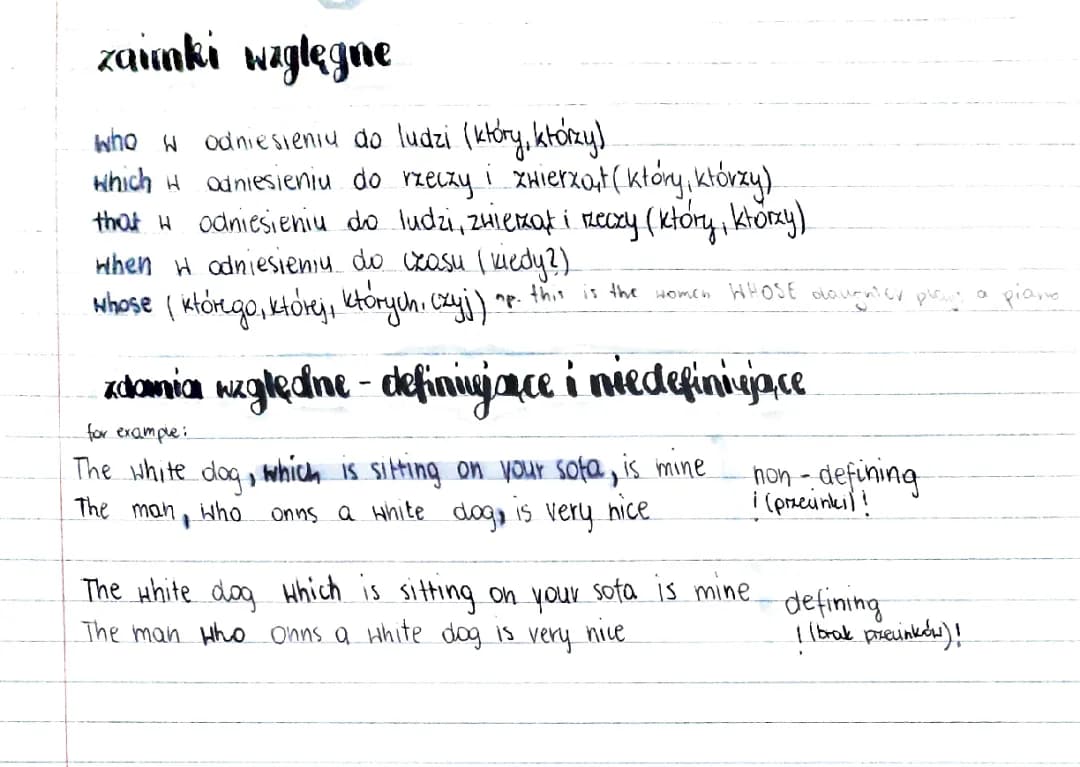 zaimki względne
who w odniesieniu do ludzi (który, którzy)
which w odniesieniu do rzeczy i zwierząt (który, którzy)
that w odniesieniu do ludzi, zwierząt i rzeczy (który, którzy)
when w odniesieniu do czasu (kiedy?)
whose (którego, której, których, czyj) np. this is the women WHOSE daugnter plays a piano
zdania względne - definiujące i niedefiniujące
for example:
The white dog, which is sitting on your sofa, is mine non - defining
The man, who owns a white dog, is very nice ! (przecinki)!
The white dog which is sitting on your sofa is mine defining
The man who owns a white dog is very nice ! (brak przecinków)!